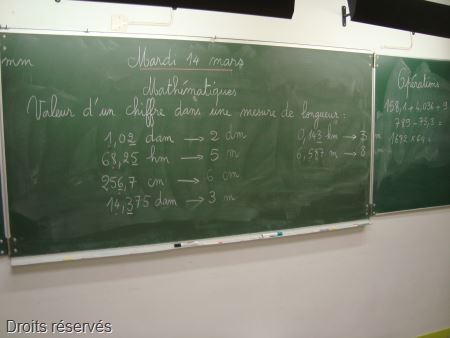 mm
Mardi 14 mars
Mathématiques
Valeur d'un chiffre dans une mesure de longueur :
1,02 dam → 2 dm
68,25 hm → 5 m
256,7 cm → 6 cm
14,375 dam → 3 m
0,143 hm → 3
6,587 m → 8
Opérations
158,1 + 4,036 + 9
789 - 75,3 =
1692 × 64
Droits réservés